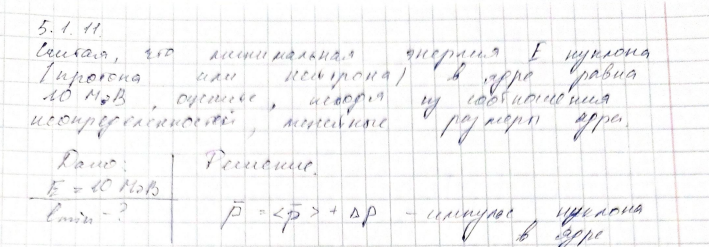 5.1.11.
Считая, что минимальная энергия E нуклона
(протона или нейтрона) в ядре равна
10 МэВ, оцените, исходя из соотношения
неопределенностей, линейные размеры ядра.
Дано: Решение.
E = 10 МэВ
lmin - ?
p̄ = <p̄> + Δp - импульс нуклона
в ядре